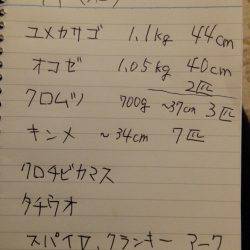 ユメカサゴ 1.1kg 44cm
オコゼ 1.05kg 40cm
2匹
クロムツ 700g ~37cm 3匹
キンメ ~34cm 7匹
クロチビカマス
タチウオ
スパイV、クランキー アーク